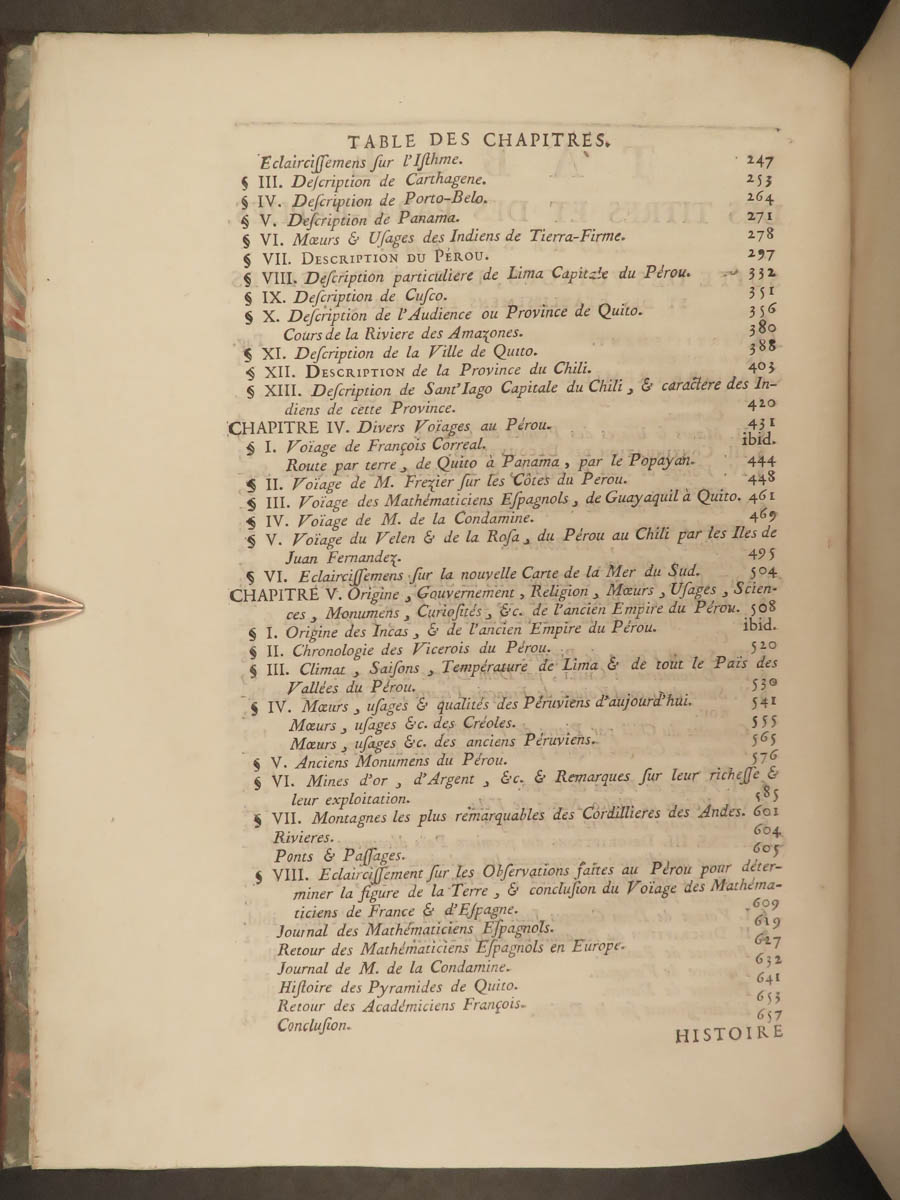 TABLE DES CHAPITRES.
Eclairciſſemens ſur l'Iſthme. 247
§ III. Deſcription de Carthagene. 253
§ IV. Deſcription de Porto-Belo. 264
§ V. Deſcription de Panama. 271
§ VI. Mœurs & Uſages des Indiens de Tierra-Firme. 278
§ VII. DESCRIPTION DU PÉROU. 297
§ VIII. Deſcription particuliere de Lima Capitale du Pérou. 332
§ IX. Deſcription de Cuſco. 351
§ X. Deſcription de l'Audience ou Province de Quito. 356
Cours de la Riviere des Amazones. 380
§ XI. Deſcription de la Ville de Quito. 388
§ XII. DESCRIPTION de la Province du Chili. 403
§ XIII. Deſcription de Sant'Iago Capitale du Chili, & caractere des In-
diens de cette Province. 420
CHAPITRE IV. Divers Voïages au Pérou. 431
§ I. Voïage de François Correal. ibid.
Route par terre, de Quito à Panama, par le Popayan. 444
§ II. Voïage de M. Frezier ſur les Côtes du Perou. 448
§ III. Voïage des Mathématiciens Eſpagnols, de Guayaquil à Quito. 461
§ IV. Voïage de M. de la Condamine. 469
§ V. Voïage du Velen & de la Roſa, du Pérou au Chili par les Iles de
Juan Fernandez. 495
§ VI. Eclairciſſemens ſur la nouvelle Carte de la Mer du Sud. 504
CHAPITRE V. Origine, Gouvernement, Religion, Mœurs, Uſages, Scien-
ces, Monumens, Curioſités, &c. de l'ancien Empire du Pérou. 508
§ I. Origine des Incas, & de l'ancien Empire du Pérou. ibid.
§ II. Chronologie des Vicerois du Pérou. 520
§ III. Climat, Saiſons, Température de Lima & de tout le Païs des
Vallées du Pérou. 530
§ IV. Mœurs, uſages & qualités des Péruviens d'aujourd'hui. 541
Mœurs, uſages &c. des Créoles. 555
Mœurs, uſages &c. des anciens Péruviens. 565
§ V. Anciens Monumens du Pérou. 576
§ VI. Mines d'or, d'Argent, &c. & Remarques ſur leur richeſſe &
leur exploitation. 585
§ VII. Montagnes les plus remarquables des Cordillieres des Andes. 601
Rivieres. 604
Ponts & Paſſages. 605
§ VIII. Eclairciſſement ſur les Obſervations faites au Pérou pour déter-
miner la figure de la Terre, & concluſion du Voïage des Mathéma-
ticiens de France & d'Eſpagne. 609
Journal des Mathématiciens Eſpagnols. 619
Retour des Mathématiciens Eſpagnols en Europe. 627
Journal de M. de la Condamine. 632
Hiſtoire des Pyramides de Quito. 641
Retour des Académiciens François. 653
Concluſion. 657
HISTOIRE